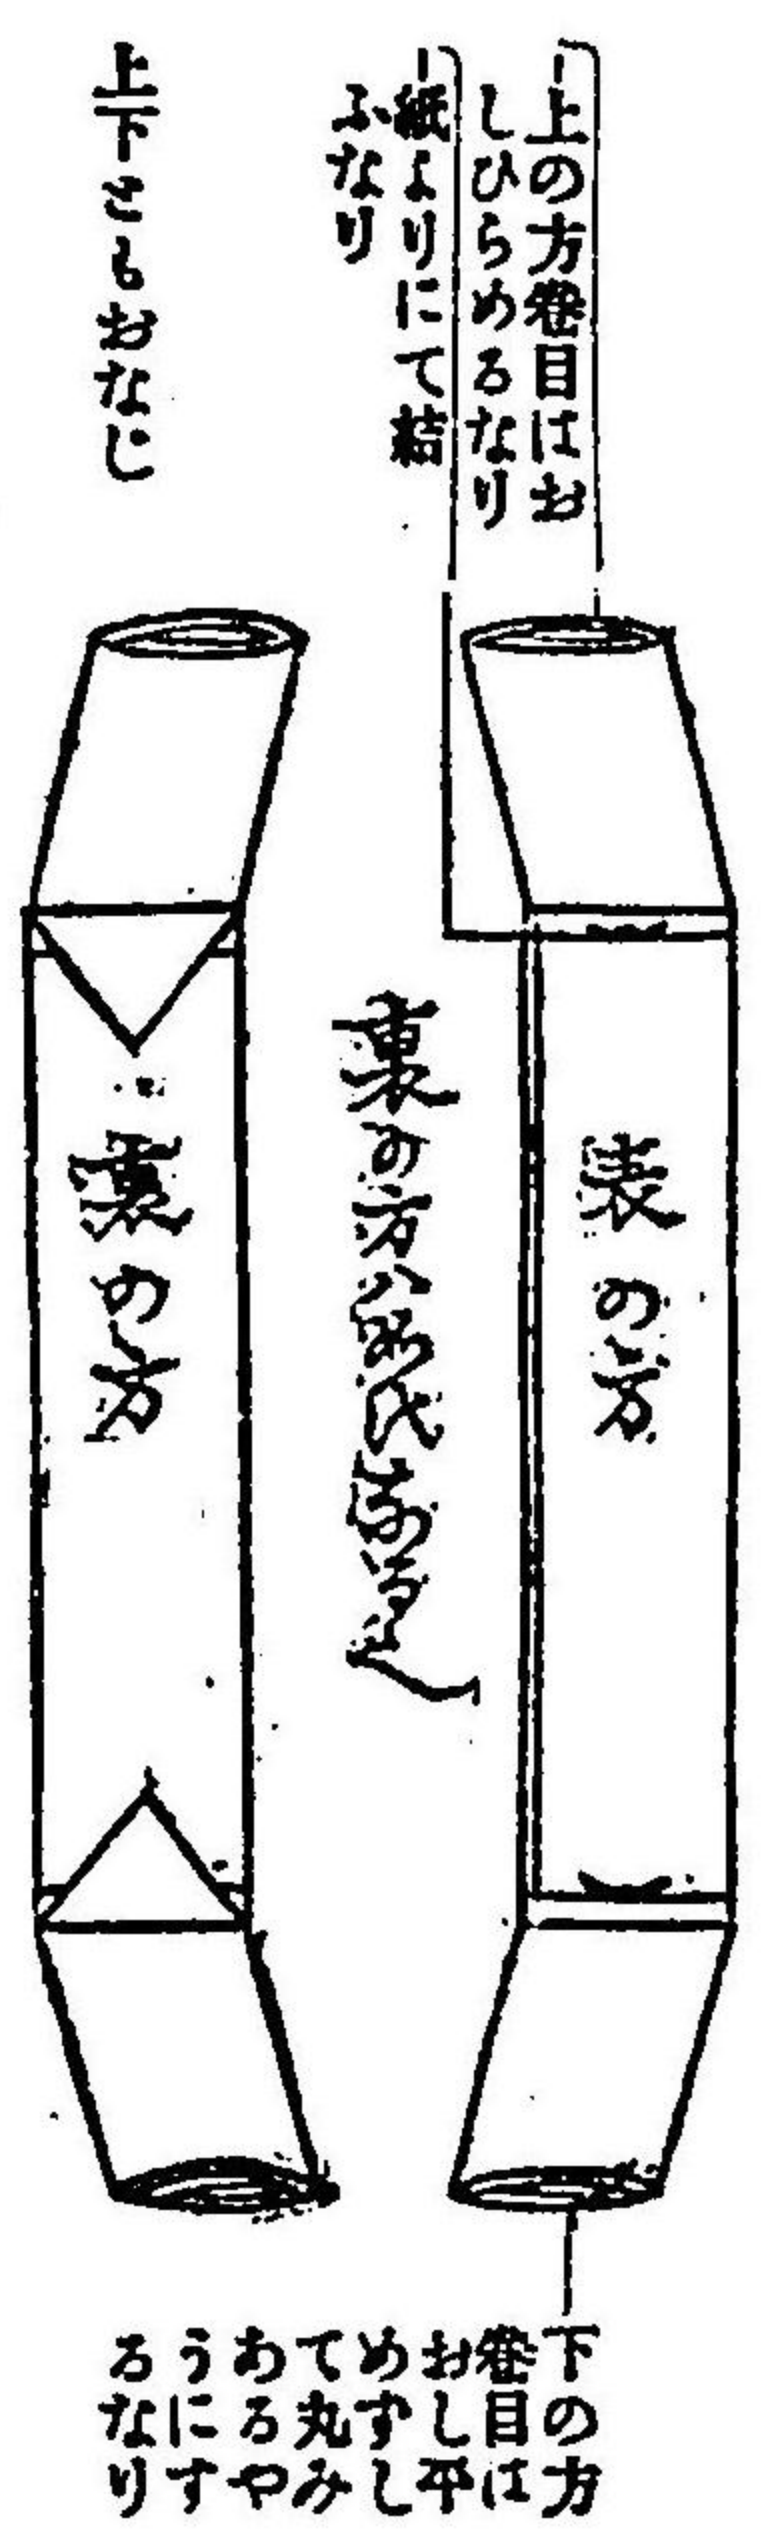 上の方卷目はお
しひらめるなり
紙よりにて結
ふなり
上下ともおなじ
表の方
裏の方
裏の方
下の方
卷目は
おし平
めずし
て丸み
あるや
うにす
るなり